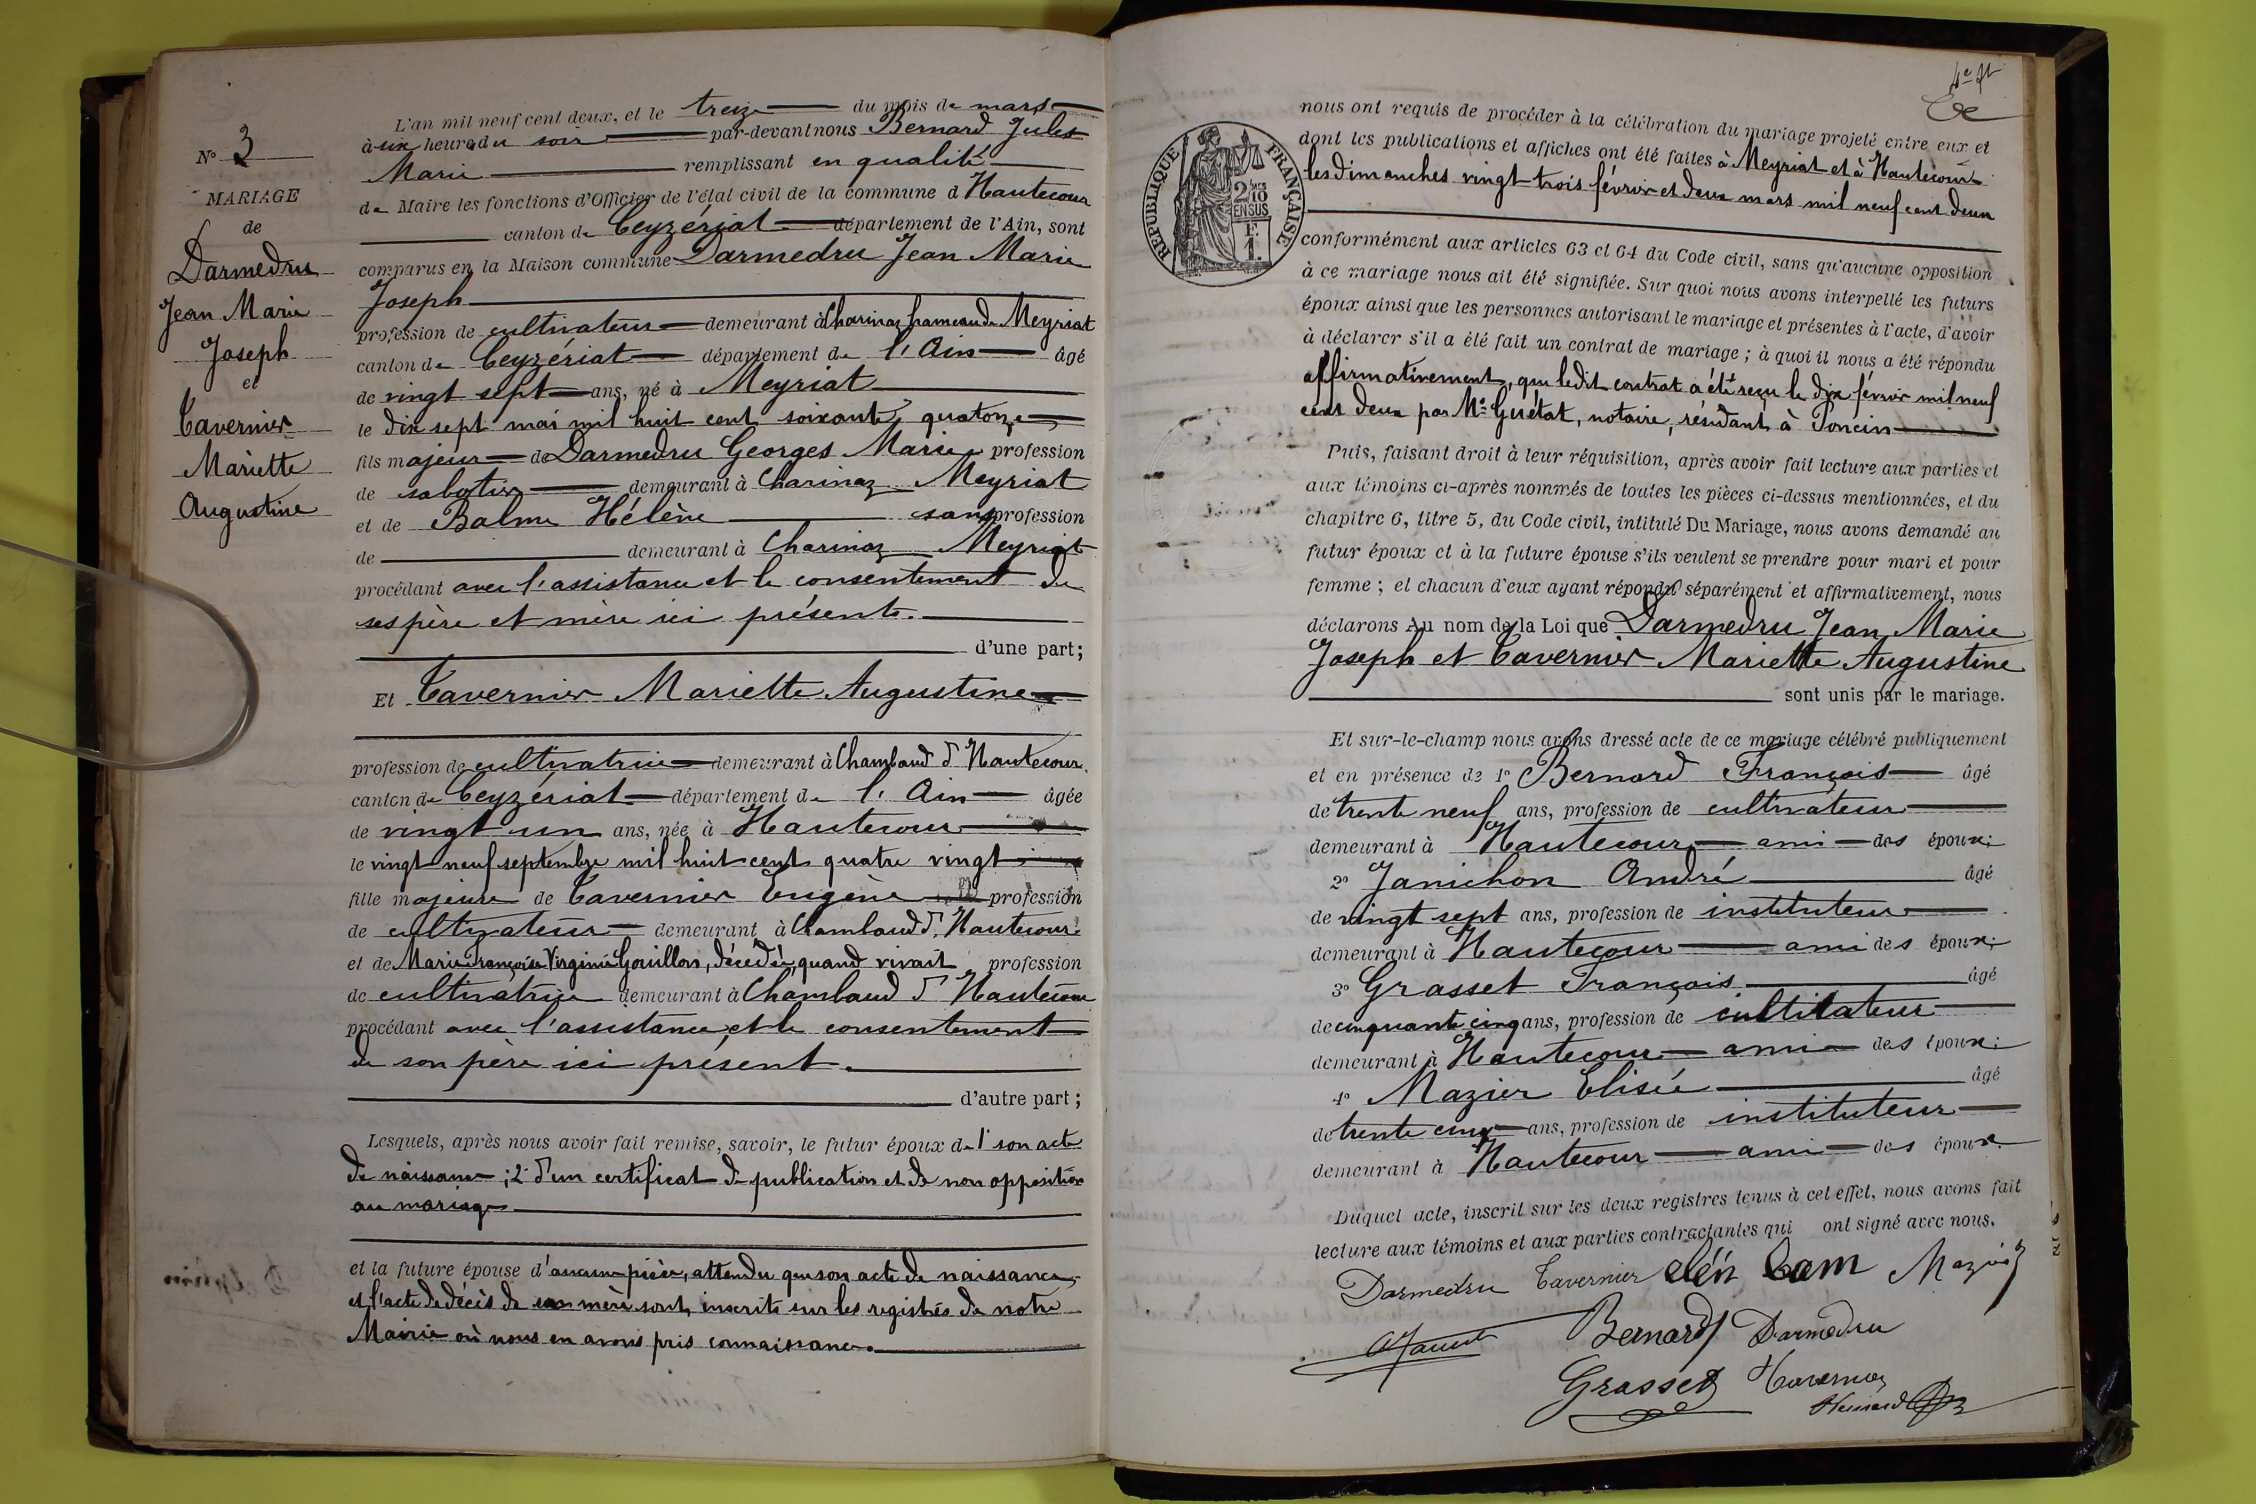 N° 3
MARIAGE
de
Darmedru
Jean Marie
Joseph
et
Tavernier
Mariette
Augustine
L'an mil neuf cent deux, et le treize du mois de mars
à six heures du soir par-devant nous Bernard Jules
Marie remplissant en qualité
de Maire les fonctions d'Officier de l'état civil de la commune d'Hautecour
canton de Ceyzériat département de l'Ain, sont
comparus en la Maison commune Darmedru Jean Marie
Joseph
profession de cultivateur demeurant à Charinaz hameau de Meyriat
canton de Ceyzériat département de l'Ain âgé
de vingt sept ans, né à Meyriat
le dix sept mai mil huit cent soixante quatorze
fils majeur de Darmedru Georges Marie profession
de sabotier demeurant à Charinaz Meyriat
et de Balme Hélène sans profession
de demeurant à Charinaz Meyriat
procédant avec l'assistance et le consentement de
ses père et mère ici présents.
d'une part;
Et Tavernier Mariette Augustine
profession de cultivatrice demeurant à Chambaud d'Hautecour
canton de Ceyzériat département de l'Ain âgée
de vingt un ans, née à Hautecour
le vingt neuf septembre mil huit cent quatre vingt
fille majeure de Tavernier Eugène profession
de cultivateur demeurant à Chambaud d'Hautecour
et de Marie Françoise Virginie Gouillon, décédée, quand vivait profession
de cultivatrice demeurant à Chambaud d'Hautecour
procédant avec l'assistance et le consentement
de son père ici présent.
d'autre part;
Lesquels, après nous avoir fait remise, savoir, le futur époux de 1° son acte
de naissance; 2° d'un certificat de publication et de non opposition
au mariage
et la future épouse d'aucune pièce, attendu que son acte de naissance
et l'acte de décès de sa mère sont inscrits sur les registres de notre
Mairie où nous en avons pris connaissance.
4e ft
RÉPUBLIQUE FRANÇAISE
2/10
EN SUS
F.
1.
nous ont requis de procéder à la célébration du mariage projeté entre eux et
dont les publications et affiches ont été faites à Meyriat et à Hautecour
les dimanches vingt-trois février et deux mars mil neuf cent deux
conformément aux articles 63 et 64 du Code civil, sans qu'aucune opposition
à ce mariage nous ait été signifiée. Sur quoi nous avons interpellé les futurs
époux ainsi que les personnes autorisant le mariage et présentes à l'acte, d'avoir
à déclarer s'il a été fait un contrat de mariage; à quoi il nous a été répondu
affirmativement, que ledit contrat a été reçu le dix février mil neuf
cent deux par Me Guétat, notaire, résidant à Poncin
Puis, faisant droit à leur réquisition, après avoir fait lecture aux parties et
aux témoins ci-après nommés de toutes les pièces ci-dessus mentionnées, et du
chapitre 6, titre 5, du Code civil, intitulé Du Mariage, nous avons demandé au
futur époux et à la future épouse s'ils veulent se prendre pour mari et pour
femme; et chacun d'eux ayant répondu séparément et affirmativement, nous
déclarons Au nom de la Loi que Darmedru Jean Marie
Joseph et Tavernier Mariette Augustine
sont unis par le mariage.
Et sur-le-champ nous avons dressé acte de ce mariage célébré publiquement
et en présence de 1° Bernard François âgé
de trente neuf ans, profession de cultivateur
demeurant à Hautecour ami des époux;
2° Janichon André âgé
de vingt sept ans, profession de instituteur
demeurant à Hautecour ami des époux;
3° Grasset François âgé
de cinquante cinq ans, profession de cultivateur
demeurant à Hautecour ami des époux;
4° Mazier Elisée âgé
de trente cinq ans, profession de instituteur
demeurant à Hautecour ami des époux.
Duquel acte, inscrit sur les deux registres tenus à cet effet, nous avons fait
lecture aux témoins et aux parties contractantes qui ont signé avec nous.
Darmedru Tavernier elén bam Mazier
Bernard Darmedru
Grasset Tavernier
Bernard